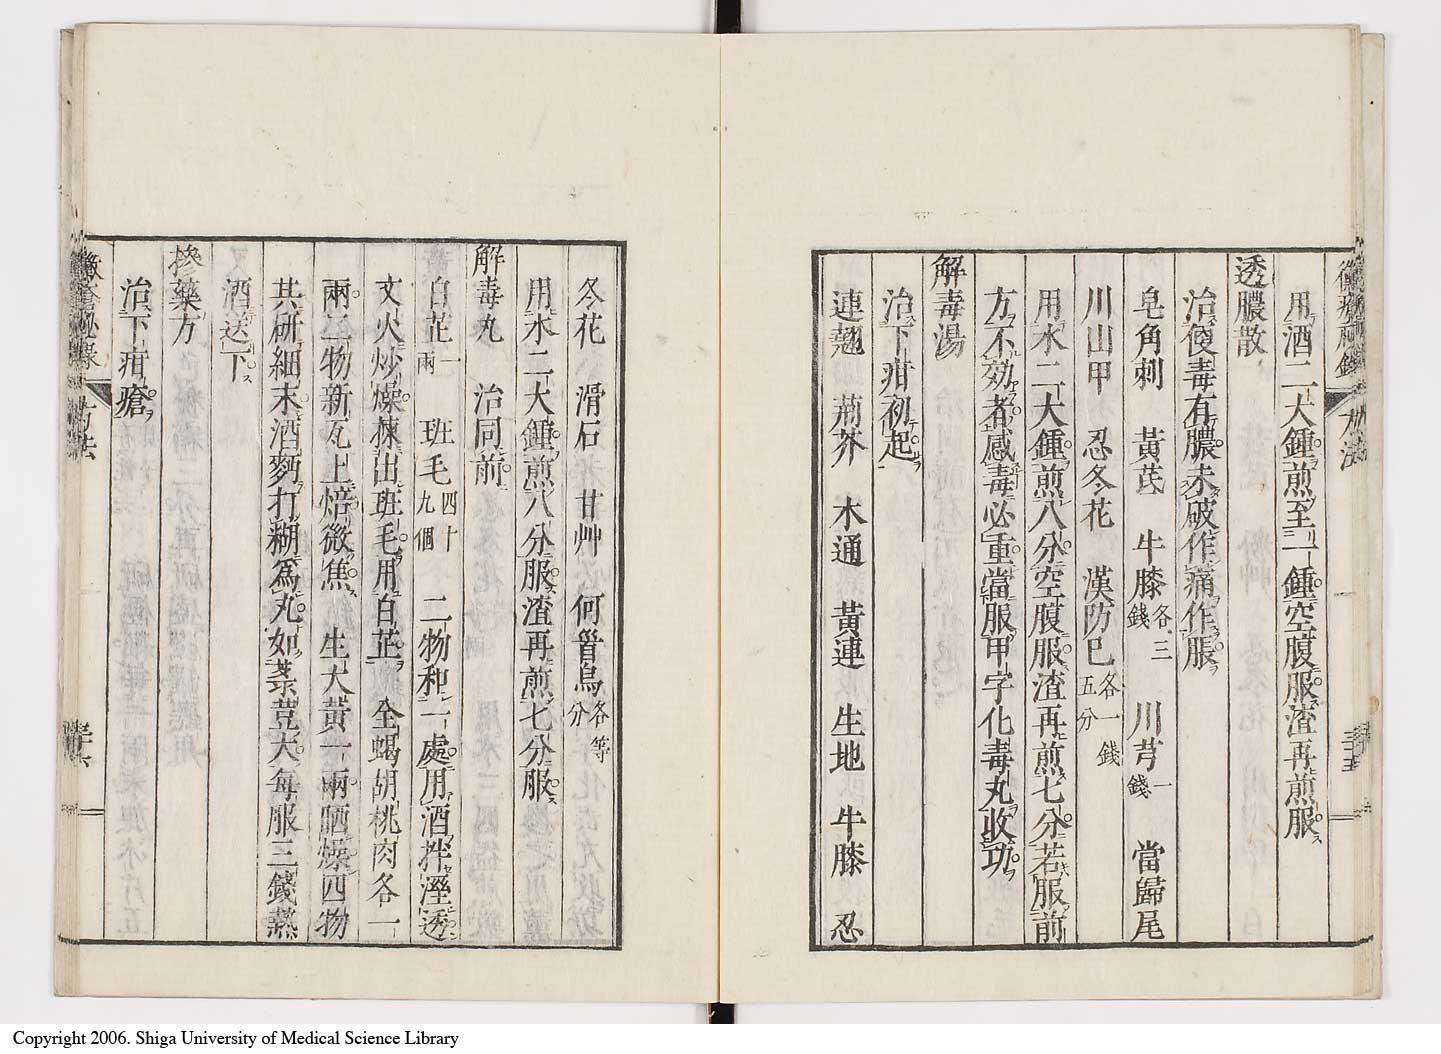 用酒二大鍾煎至一鍾空腹服渣再煎服
透膿散
治便毒有膿未破作痛作脹
皂角刺 黃芪 牛膝各三錢 川芎一錢 當歸尾
川山甲 忍冬花 漢防巳各一錢五分
用水二大鍾煎八分空腹服渣再煎七分若服前
方不効者感毒必重當服甲字化毒丸收功
解毒湯
治下疳初起
連翹 荊芥 木通 黃連 生地 牛膝 忍
冬花 滑石 甘艸 何首烏各等分
用水二大鍾煎八分服渣再煎七分服
解毒丸 治同前
白芷一兩 班毛四十九個 二物和一處用酒拌溼透
文火炒燥揀出班毛用白芷 全蝎胡桃肉各一
兩二物新瓦上焙微焦 生大黃一兩晒燥四物
共研細末酒麪打糊為丸如菉荳大每服三錢熱
酒送下
摻藥方
治下疳瘡
黴瘡秘錄 方法
Copyright 2006. Shiga University of Medical Science Library